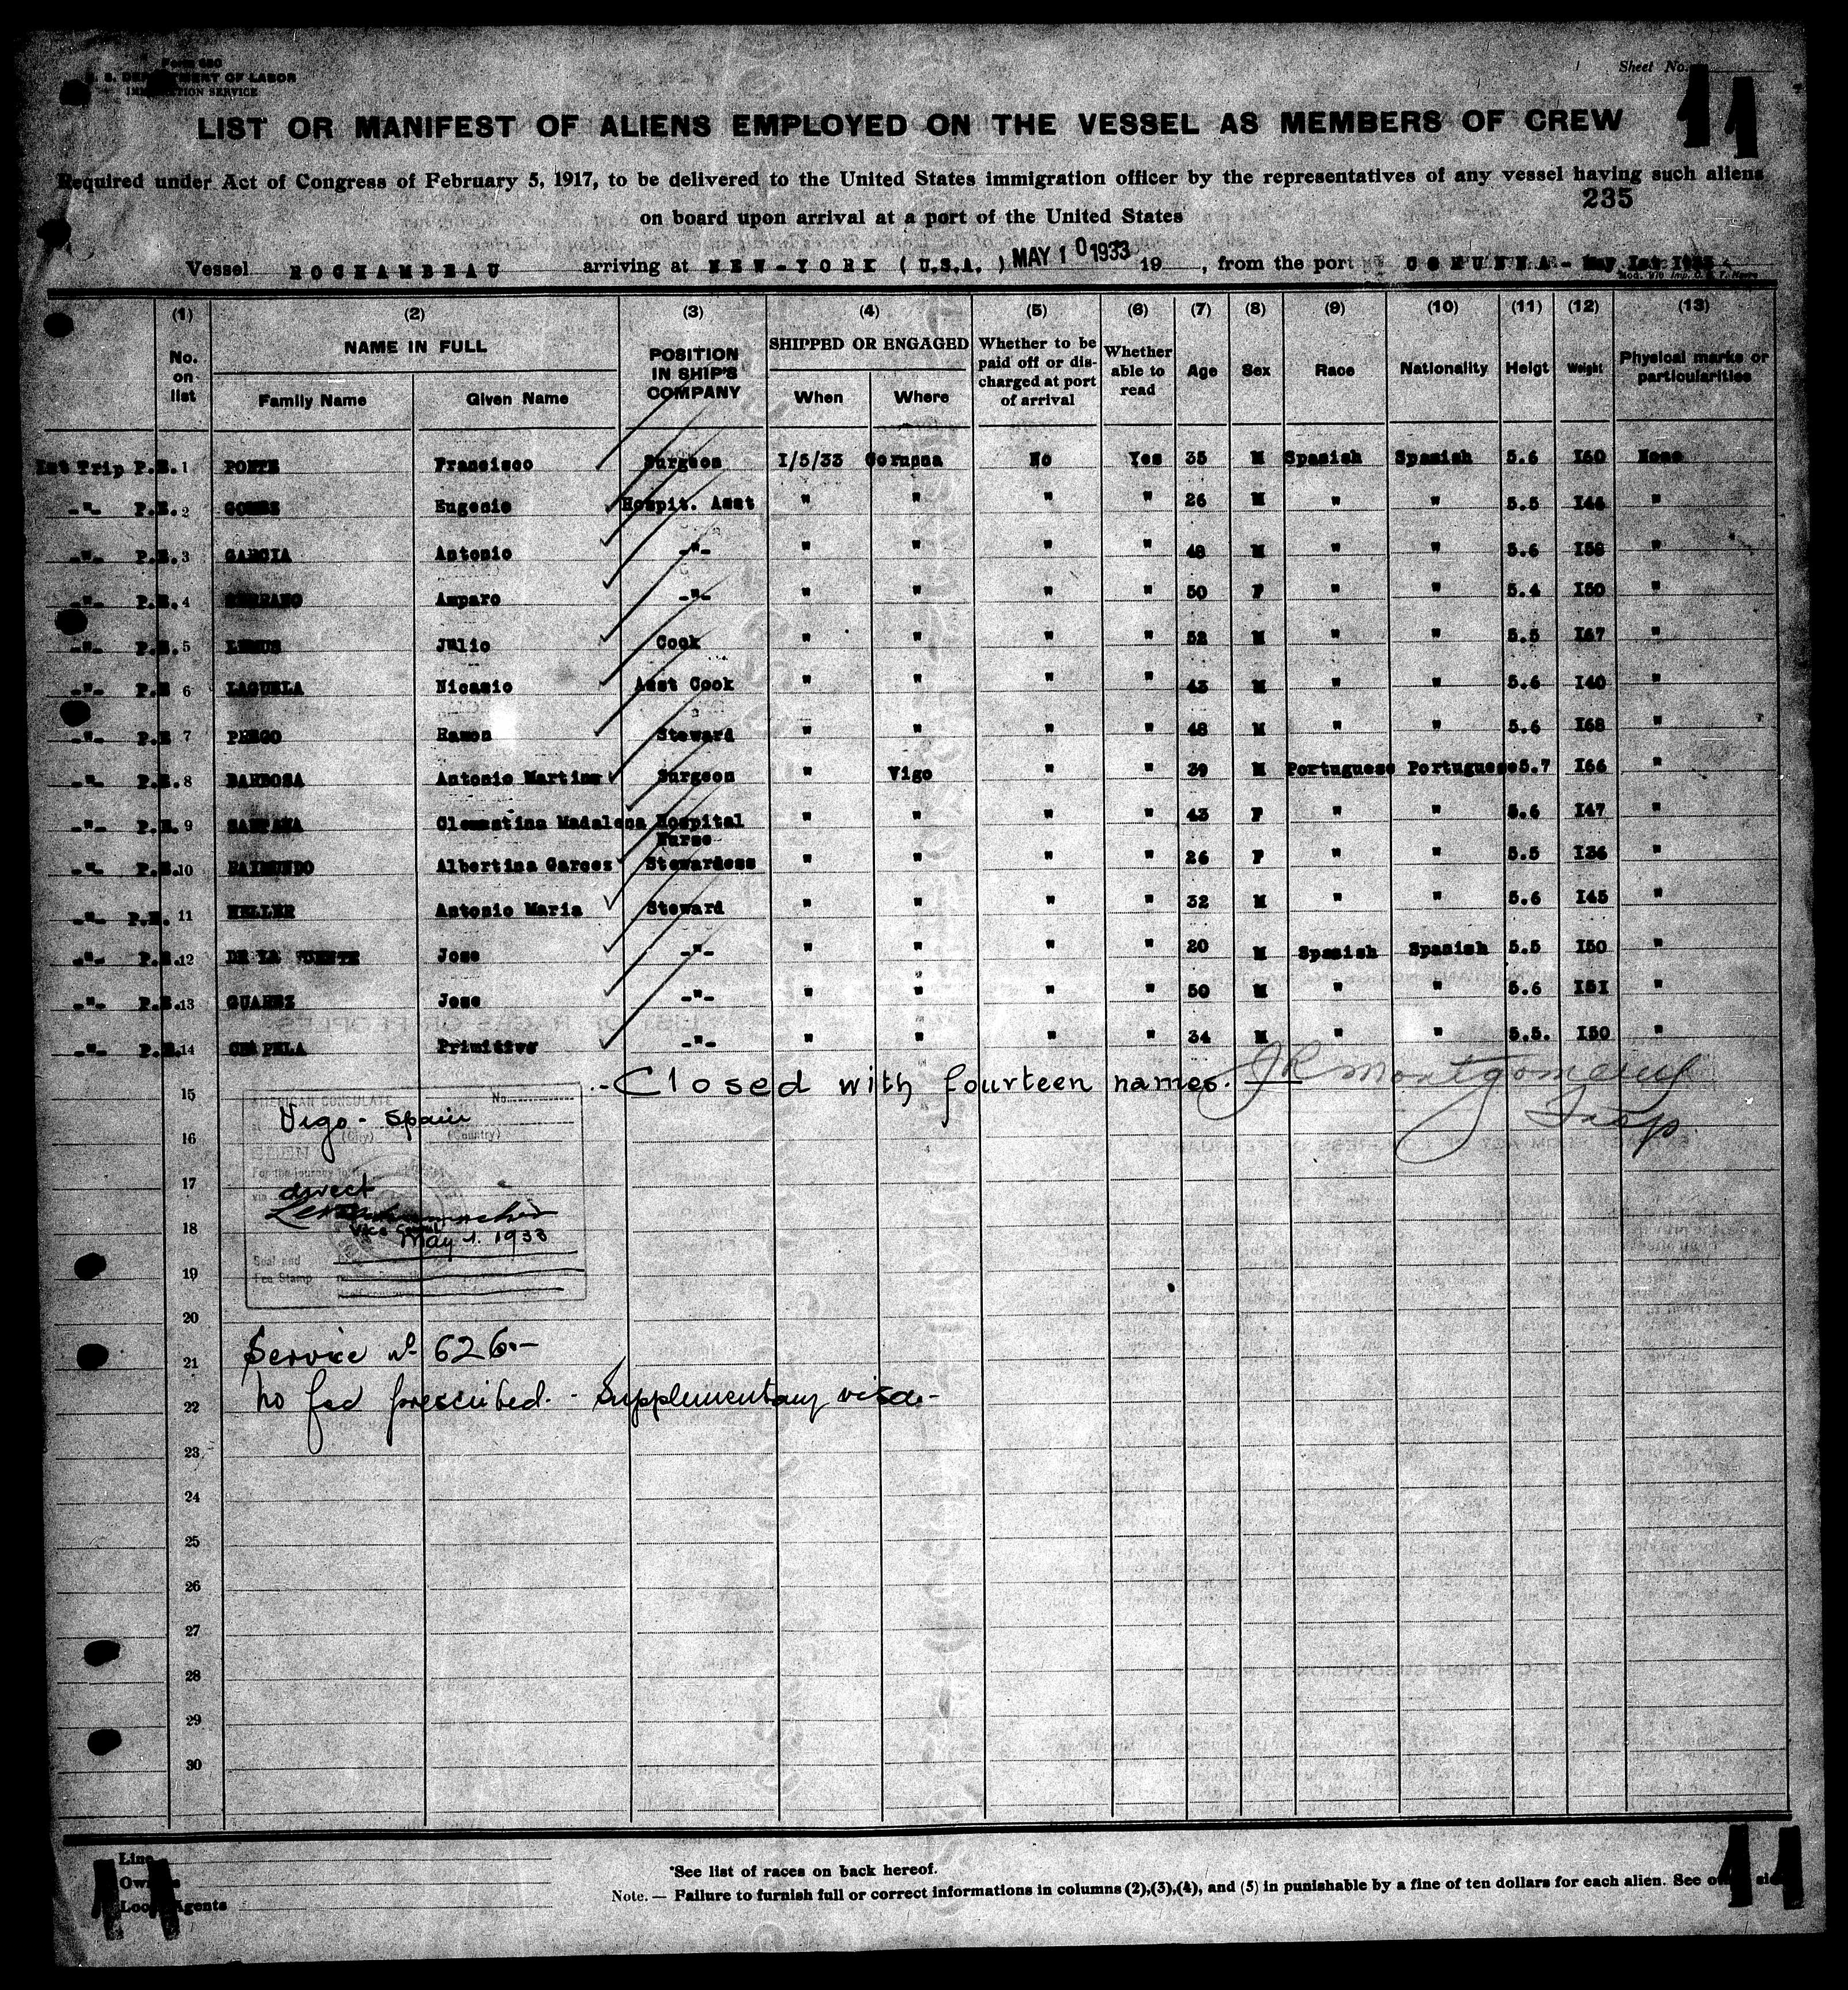 Form 680
U. S. DEPARTMENT OF LABOR
IMMIGRATION SERVICE
Sheet No.
11
LIST OR MANIFEST OF ALIENS EMPLOYED ON THE VESSEL AS MEMBERS OF CREW
Required under Act of Congress of February 5, 1917, to be delivered to the United States immigration officer by the representatives of any vessel having such aliens
235
on board upon arrival at a port of the United States
Vessel ROCHAMBEAU arriving at NEW-YORK (U.S.A.) MAY 10 1933 19 , from the port CORUNNA - May 1st
(1) (2) (3) (4) (5) (6) (7) (8) (9) (10) (11) (12) (13)
No. on list NAME IN FULL Family Name Given Name POSITION IN SHIP'S COMPANY SHIPPED OR ENGAGED When Where Whether to be paid off or discharged at port of arrival Whether able to read Age Sex Race Nationality Heigt Weight Physical marks or particularities
1st Trip P.E. 1 PONTE Francisco Surgeon I/5/33 Corunna No Yes 35 M Spanish Spanish 5.6 I60 None
-"- P.E. 2 GOMEZ Eugenio Hospit. Asst " " " " 26 M " " 5.5 I46 "
-"- P.E. 3 GARCIA Antonio -"- " " " " 48 M " " 5.6 I58 "
-"- P.E. 4 Amparo -"- " " " " 50 F " " 5.4 I50 "
-"- P.E. 5 LEMUS Julio Cook " " " " 52 M " " 5.5 I47 "
-"- P.E 6 LAGUELA Nicasio Asst Cook " " " " 43 M " " 5.6 I40 "
-"- P.E 7 PREGO Ramon Steward " " " " 48 M " " 5.6 I68 "
-"- P.E. 8 BARBOSA Antonio Martins Surgeon " Vigo " " 39 M Portuguese Portuguese 5.7 I66 "
-"- P.E. 9 SANTANA Clementina Madalena Hospital Nurse " " " " 43 F " " 5.6 I47 "
-"- P.E. 10 RAIMUNDO Albertina Garces Stewardess " " " " 26 F " " 5.5 I36 "
-"- P.E. 11 HELLER Antonio Maria Steward " " " " 32 M " " 5.6 I45 "
-"- P.E. 12 DE LA FUENTE Jose -"- " " " " 20 M Spanish Spanish 5.5 I50 "
-"- P.E. 13 Jose -"- " " " " 50 M " " 5.6 I5I "
-"- P.E. 14 Primitivo -"- " " " " 34 M " " 5.5. I50 "
.-Closed with fourteen names.- JR Montgomery
Insp.
15
AMERICAN CONSULATE No.
Vigo - Spain
(City) (Country)
16
SEEN
For the journey to
17
via direct
18
Vice Consul
May 1. 1933
19
Seal and
Fee Stamp
20
Service Nº 626.-
21
No fee prescribed. - Supplementary visa.-
22
23
24
25
26
27
28
29
30
Line
Owners
Local Agents
*See list of races on back hereof.
Note. — Failure to furnish full or correct informations in columns (2),(3),(4), and (5) in punishable by a fine of ten dollars for each alien. See other side
11
11